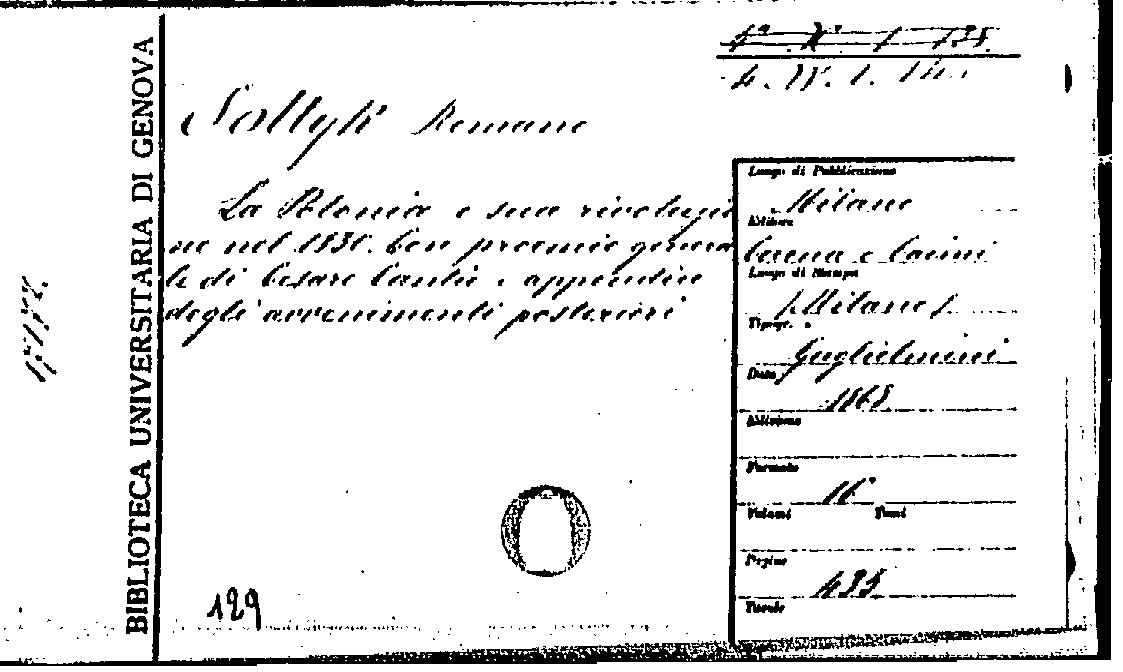 BIBLIOTECA UNIVERSITARIA DI GENOVA
Soltyk Romano
La Polonia e sua rivoluzio
ne nel 1830. Con proemio genera
le di Cesare Cantù e appendice
degli avvenimenti posteriori
Luogo di Pubblicazione
Milano
Editore
Luogo di Stampa
/Milano/
Tipogr.
Guglielmini
Data
1863
Edizione
Formato
16°
Volumi Tomi
Pagine
435
Tavole
129